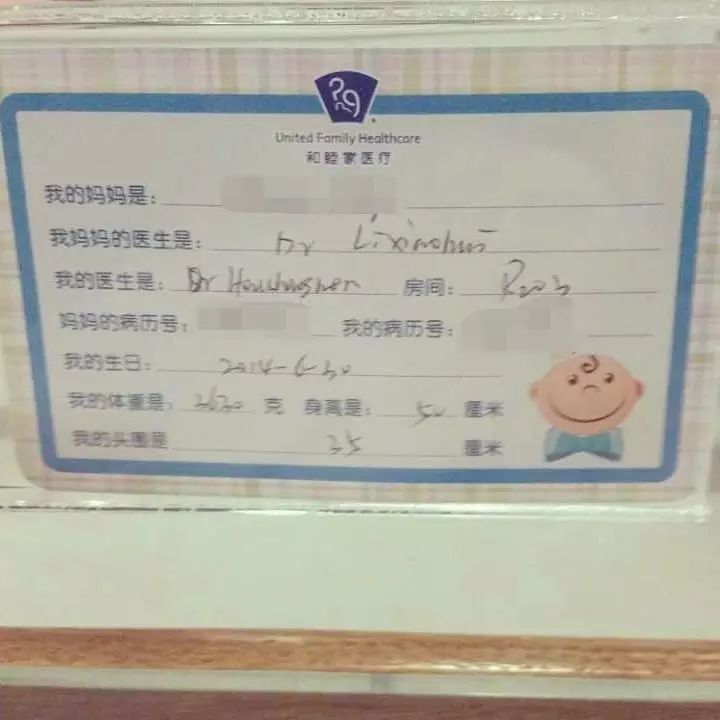 United Family Healthcare
和睦家医疗
我的妈妈是:
我妈妈的医生是: Dr Lixiaohui
我的医生是: Dr 房间:
妈妈的病历号: 我的病历号:
我的生日: 2014-6-30
我的体重是: 克 身高是: 50 厘米
我的头围是 35 厘米